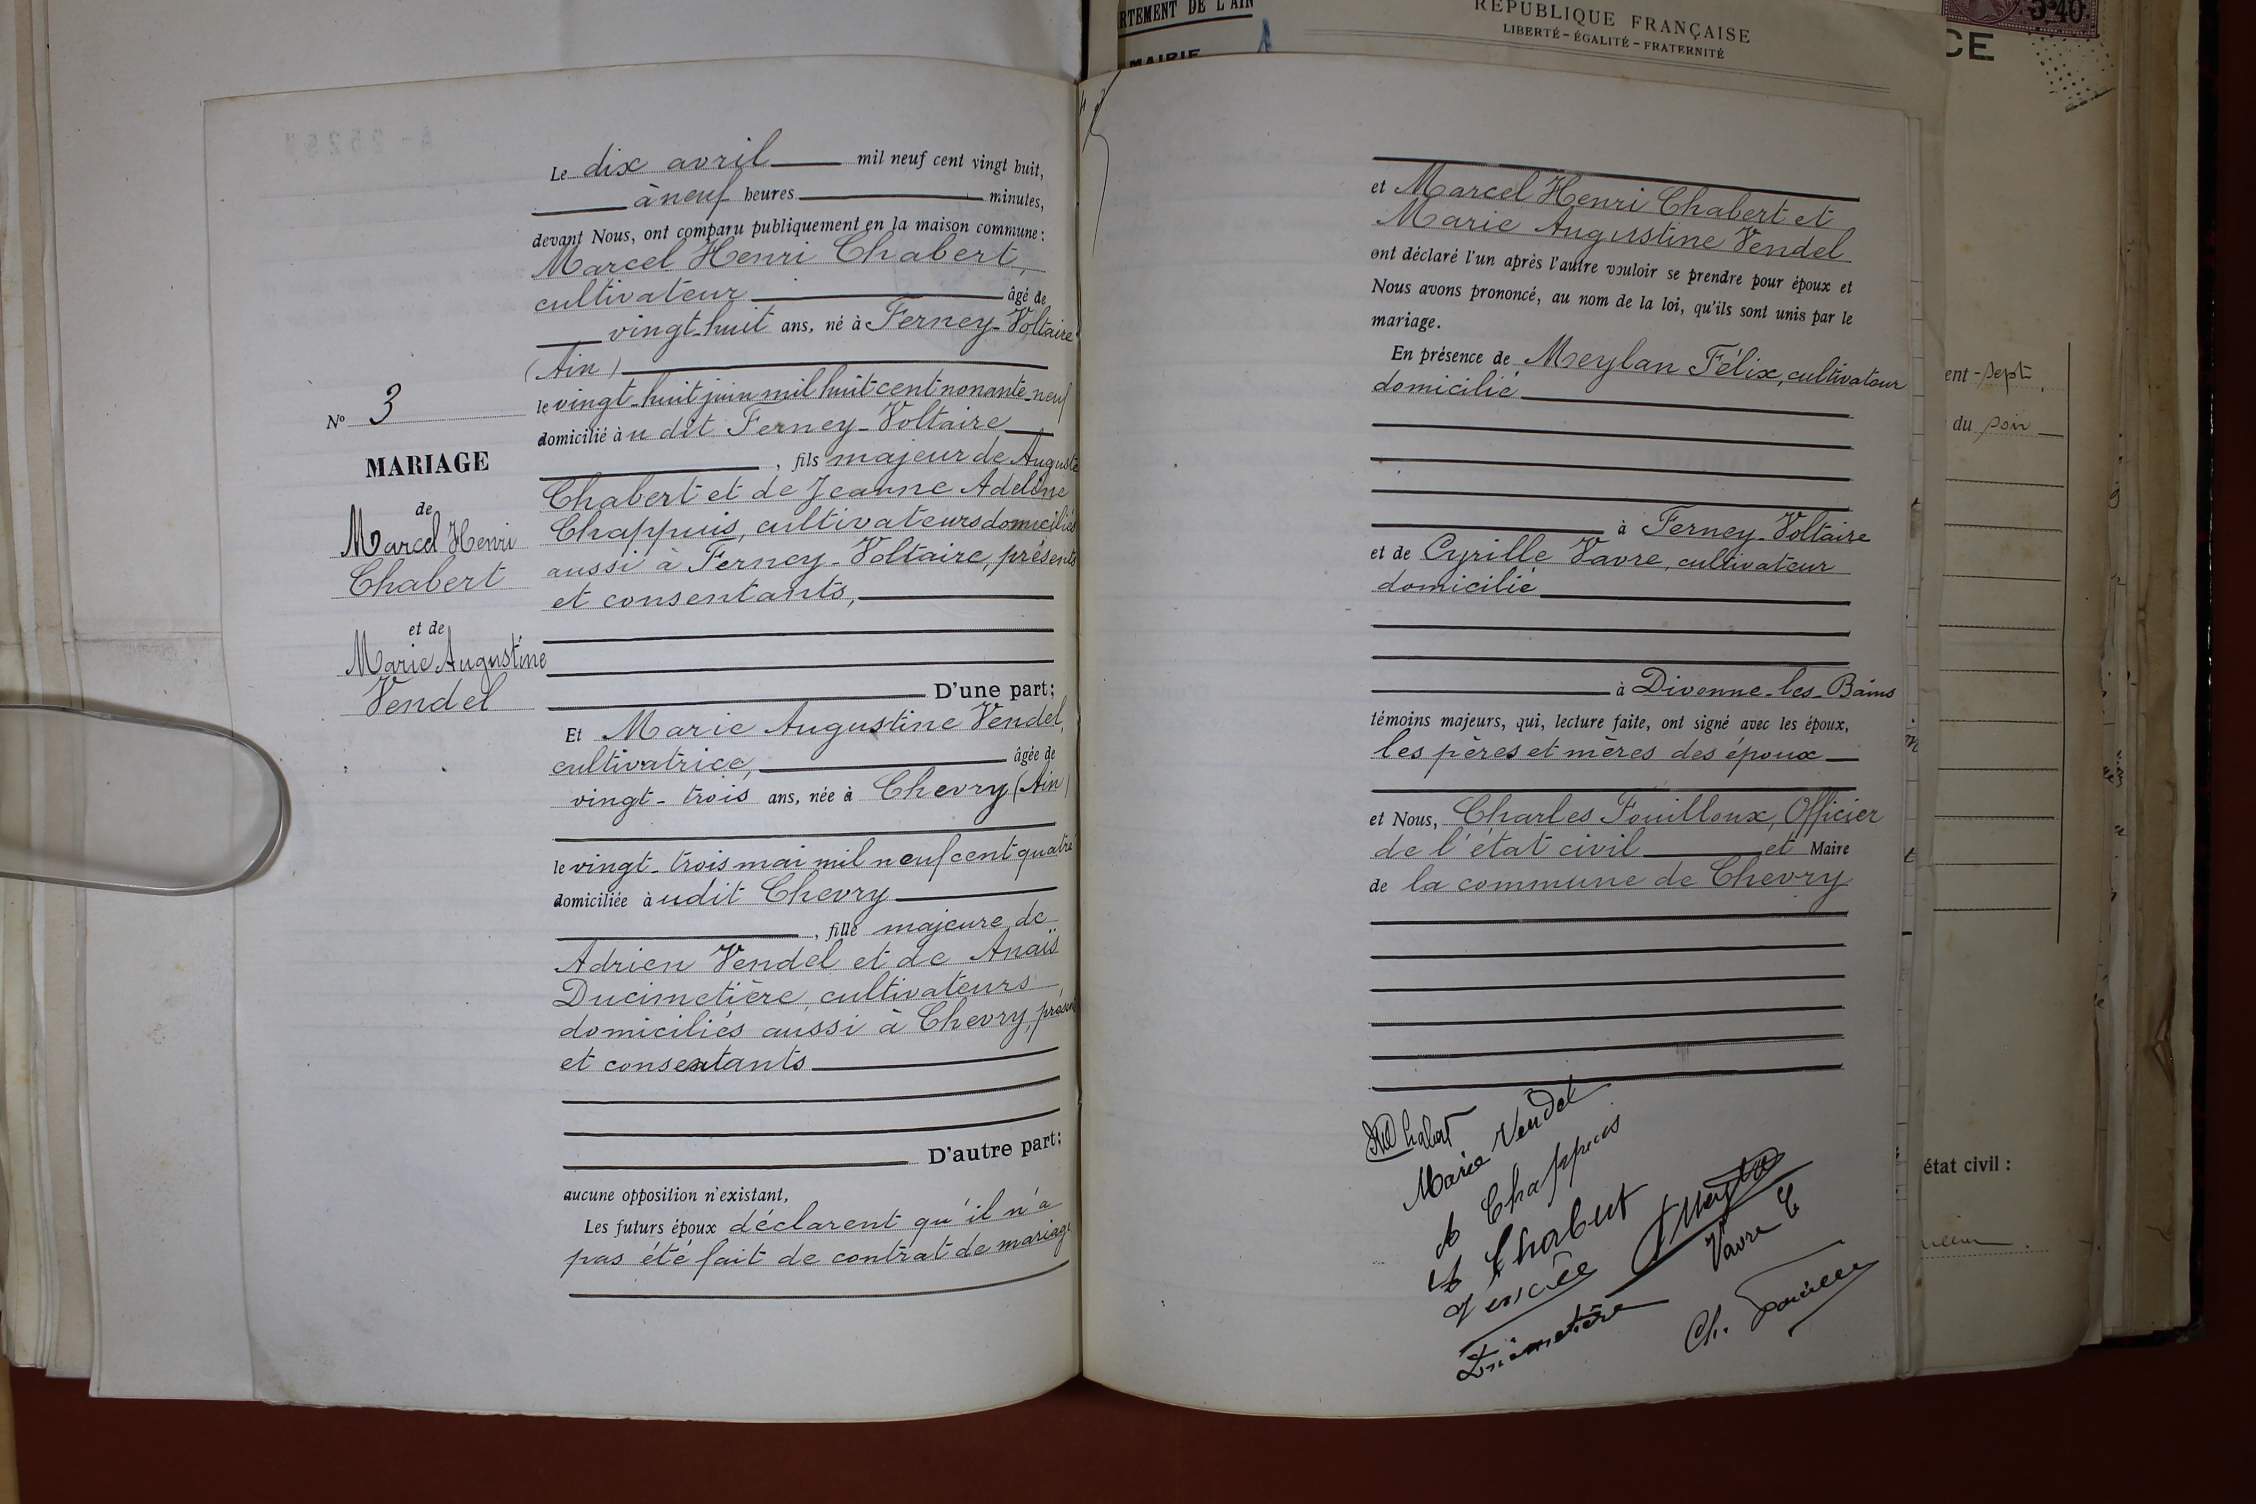 RTEMENT DE L'AIN
MAIRIE
RÉPUBLIQUE FRANÇAISE
LIBERTÉ - ÉGALITÉ - FRATERNITÉ
CE
5 40
Le dix avril mil neuf cent vingt huit,
à neuf heures minutes,
devant Nous, ont comparu publiquement en la maison commune :
Marcel Henri Chabert,
cultivateur âgé de
vingt-huit ans, né à Ferney-Voltaire
(Ain)
le vingt-huit juin mil huit cent nonante-neuf
domicilié à u dit Ferney-Voltaire
, fils majeur de Auguste
Chabert et de Jeanne Adeline
Chappuis, cultivateurs domiciliés
aussi à Ferney-Voltaire, présents
et consentants,
D'une part;
Et Marie Augustine Vendel,
cultivatrice, âgée de
vingt-trois ans, née à Chevry (Ain)
le vingt-trois mai mil neuf cent quatre
domiciliée à udit Chevry
, fille majeure de
Adrien Vendel et de Anaïs
Ducimetière, cultivateurs
domiciliés aussi à Chevry, présen
et consentants
D'autre part;
aucune opposition n'existant,
Les futurs époux déclarent qu'il n'a
pas été fait de contrat de mariage
N° 3
MARIAGE
de
Marcel Henri
Chabert
et de
Marie Augustine
Vendel
et Marcel Henri Chabert et
Marie Augustine Vendel
ont déclaré l'un après l'autre vouloir se prendre pour époux et
Nous avons prononcé, au nom de la loi, qu'ils sont unis par le
mariage.
En présence de Meylan Félix, cultivateur
domicilié
à Ferney-Voltaire
et de Cyrille Vavre, cultivateur
domicilié
à Divonne-les-Bains
témoins majeurs, qui, lecture faite, ont signé avec les époux,
les pères et mères des époux
et Nous, Charles Fouilloux, Officier
de l'état civil et Maire
de la commune de Chevry
Chabert
Marie Vendel
A Chappuis
Chabert
Vavre C
Ducimetière
Ch.
ent-sept
du soir
état civil :